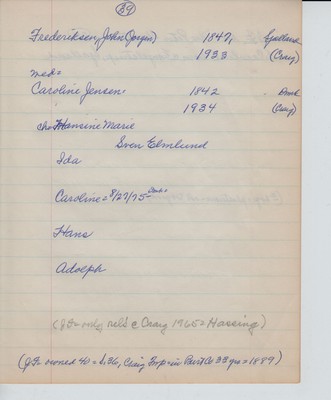 39
Frederiksen, John (Jorgen) 1847,
1933 (Craig)
med=
Caroline Jensen 1842 Dmk
1934 (Craig)
ch= Hansine Marie
Sven Elmlund
Ida
Caroline = 8/27/75 -
Hans
Adolph
(J Fr only rel's c Craig 1965 = Hassing)
(J Fr owned 40 = S. 36, Craig Twp = in Burt Co 33 yrs = 1889)